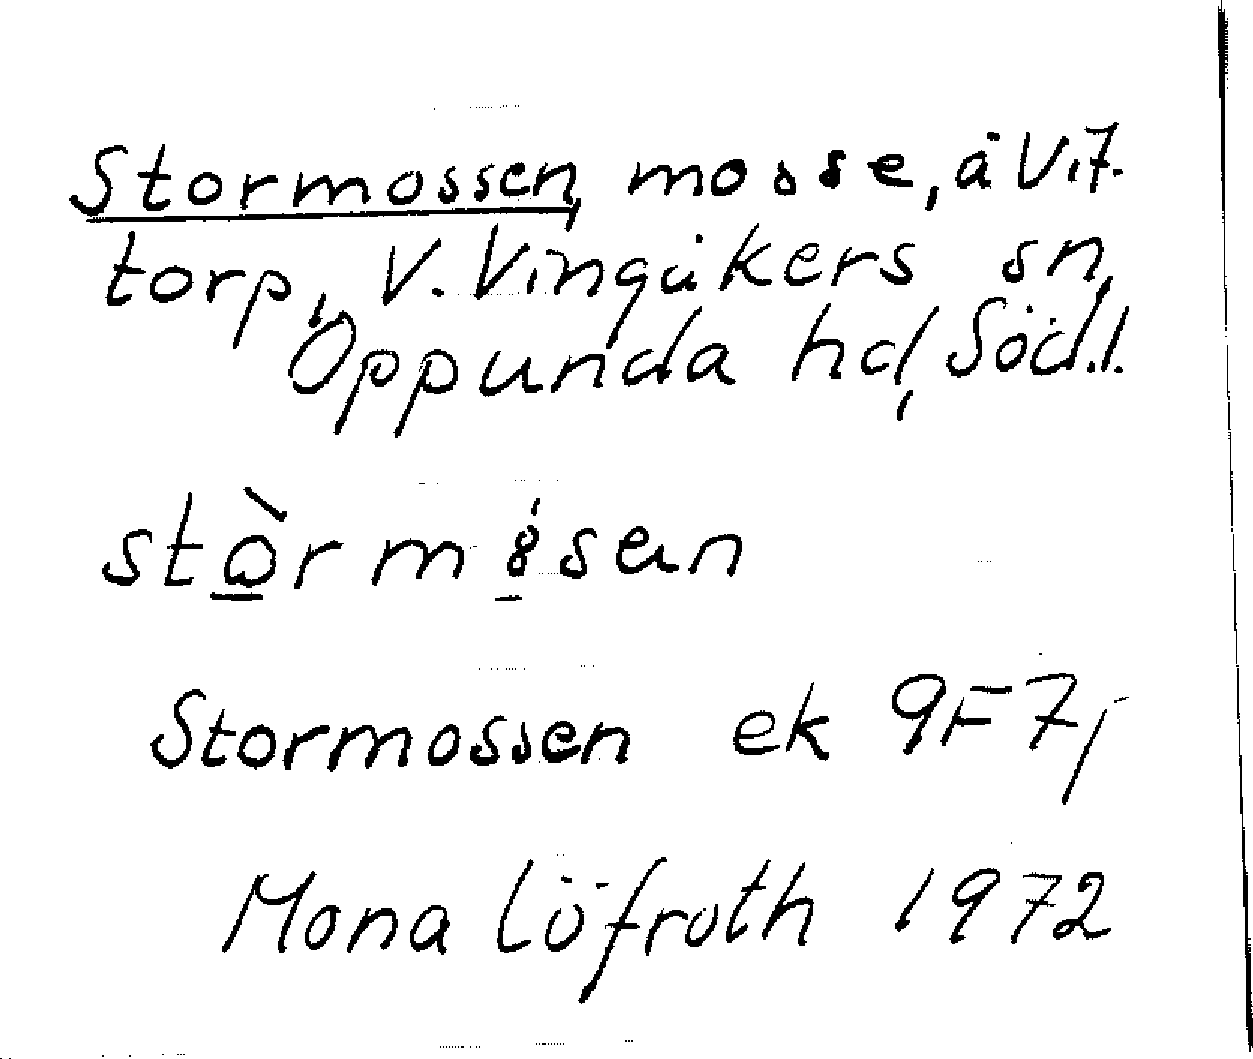 Stormossen, mosse, å Vit-
torp, V. Vingåkers sn,
Oppunda hd, Södl.
stòrmósen
Stormossen ek 9F 7j
Mona Löfroth 1972